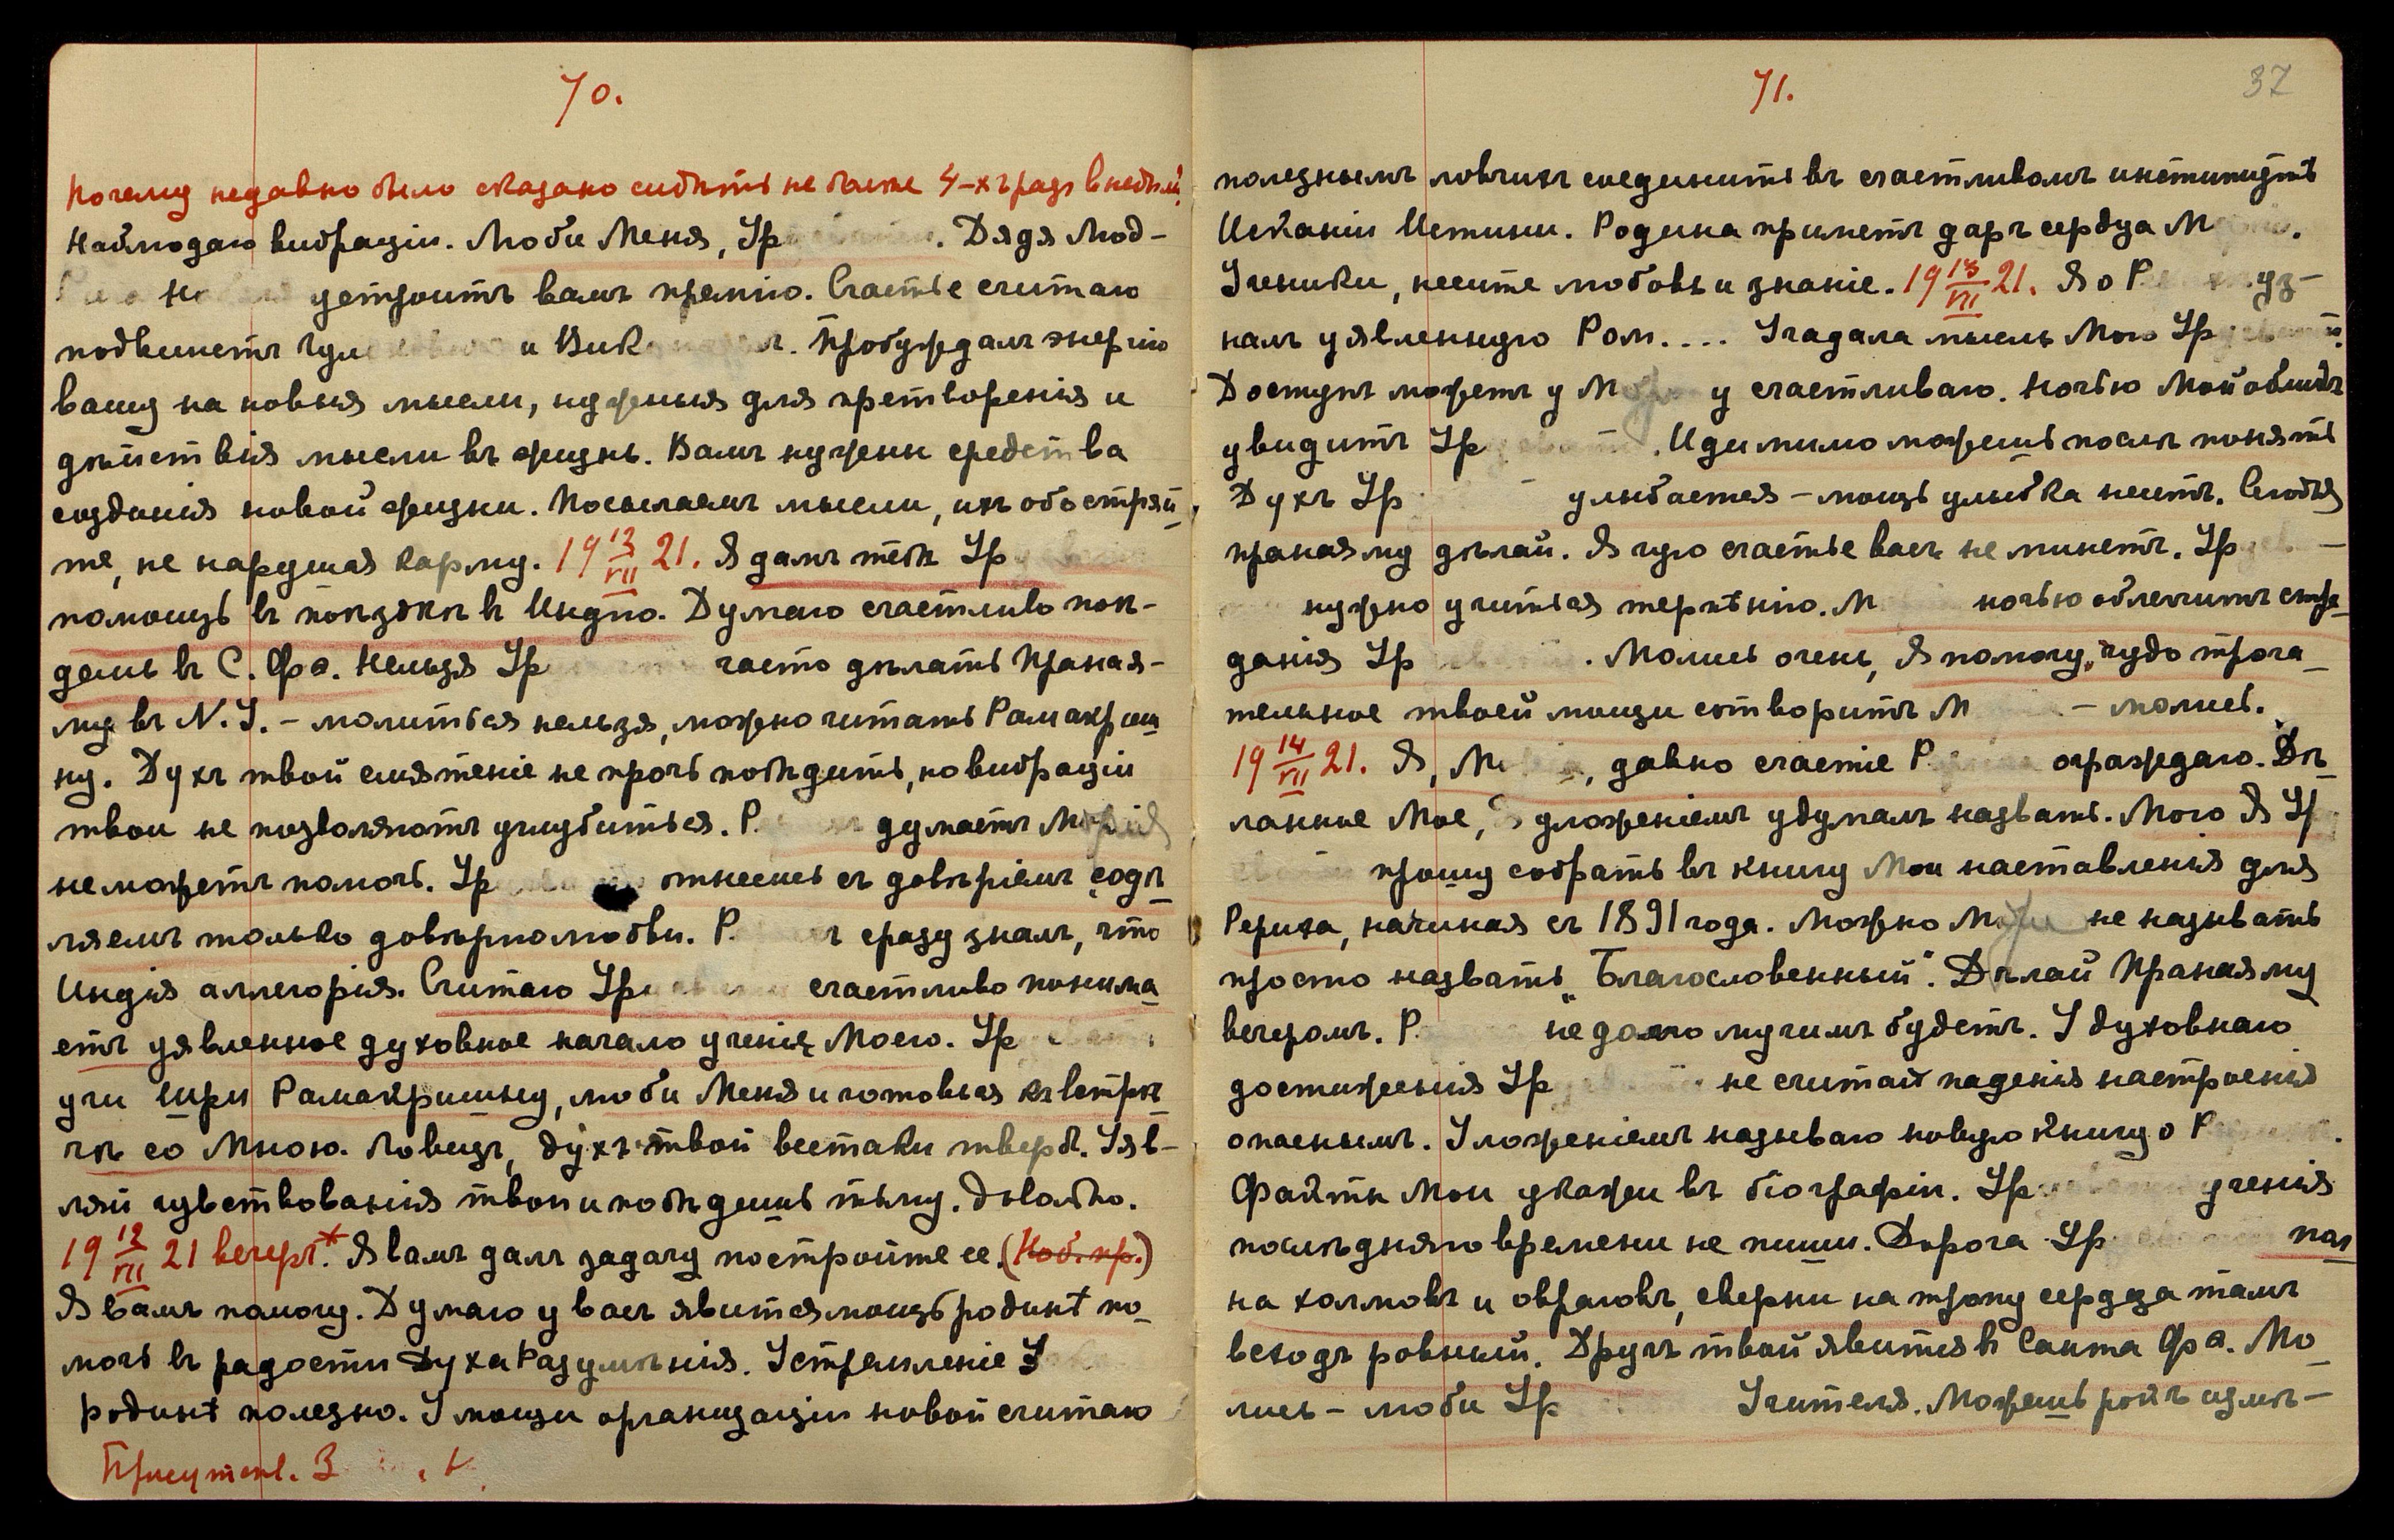 70.
Почему недавно было сказано сидѣть не более 4-хъ разъ в недѣлю?
Наблюдаю вибраціи. Люби Меня, Ур. Дядя Мод-
устроитъ вамъ премію. Счастье считаю
подвинетъ и Вик. Пробуждалъ энергію
вашу на новыя мысли, нужныя для претворенія и
дѣйствія мысли въ жизнь. Вамъ нужны средства
созданія новой жизни. Посылаемъ мысли, ихъ обостряй-
те, не нарушая карму. 19 13/VII 21. Я далъ тебѣ Ур
помощь в поѣздкѣ в Индію. Думаю счастливо поѣ-
дешь в С. Фэ. Нельзя Ур часто дѣлать Праная-
му въ N.Y. – молиться нельзя, можно читать Рамакриш-
ну. Духъ твой смятеніе не прочь побѣдить, но вибраціи
твои не позволяютъ углубиться. Р. думаетъ Морія
не можетъ помочь. Ур отнесись съ довѣріемъ содѣ-
ляемъ только довѣріюлюбви. Р. сразу зналъ, что
Индія аллегорія. Считаю Ур счастливо понима-
етъ уявленное духовное начало ученія Моего. Ур
учи Шри Рамакришну, люби Меня и готовься къ встрѣ-
чѣ со Мною. Ловецъ, духъ твой всетаки твердъ. Уяв-
ляй чувствованія твои и побѣдешь тьму. Довольно.
19 13/VII 21 вечеръ* Я вамъ далъ задачу постройте ее. (Ноб. пр.)
Я вамъ помогу. Думаю у васъ явится мощь родинѣ по-
мочь въ радости Духа Разумѣнія. Устремленіе У
родинѣ полезно. У мощи организаціи новой считаю
Присутств. З
71.
37
полезнымъ ловчихъ соединить въ счастливомъ институтѣ
Исканіи Истины. Родина приметъ даръ сердца М.
Ученики, несите любовь и знаніе. 19 13/VII 21. Я о Р уз-
налъ уявленную Рам.... Угадала мысль Мою Ур
Доступъ можетъ у М у счастливаго. Ночью Мой обликъ
увидитъ Ур. Иди мимо можешь послѣ понять
Духъ Ур улыбается – мощь улыбка неситъ. Сегодня
пранаяму дѣлай. Я чую счастье васъ не минетъ. Ур
нужно учиться терпѣнію. М ночью облегчитъ стра-
данія Ур. Молись очень, Я помогу, чудо трога-
тельное твоей мощи сотворитъ М – молись.
19 14/VII 21. Я, М, давно счастіе Р ограждаю. Дѣ-
ланное Мое, Я уложеніемъ удумалъ назвать. Мого Я Ур
прошу собрать въ книгу Мои наставленія для
Рериха, начиная съ 1891 года. Можно М не называть
просто назвать „Благословенный". Дѣлай Пранаяму
вечеромъ. Р. не долго мучимъ будетъ. У духовнаго
достиженія Ур не считай паденія настроенія
опаснымъ. Уложеніемъ называю новую книгу о Р.
Факты Мои укажи въ біографіи. Ур ученія
послѣдняго времени не пиши. Дорога Ур пол-
на холмовъ и овраговъ, сверни на тропу сердца тамъ
всходъ ровный. Другъ твой явится в Санта Фэ. Мо-
лись – люби Ур Учителя. Можешь рокъ измѣ-